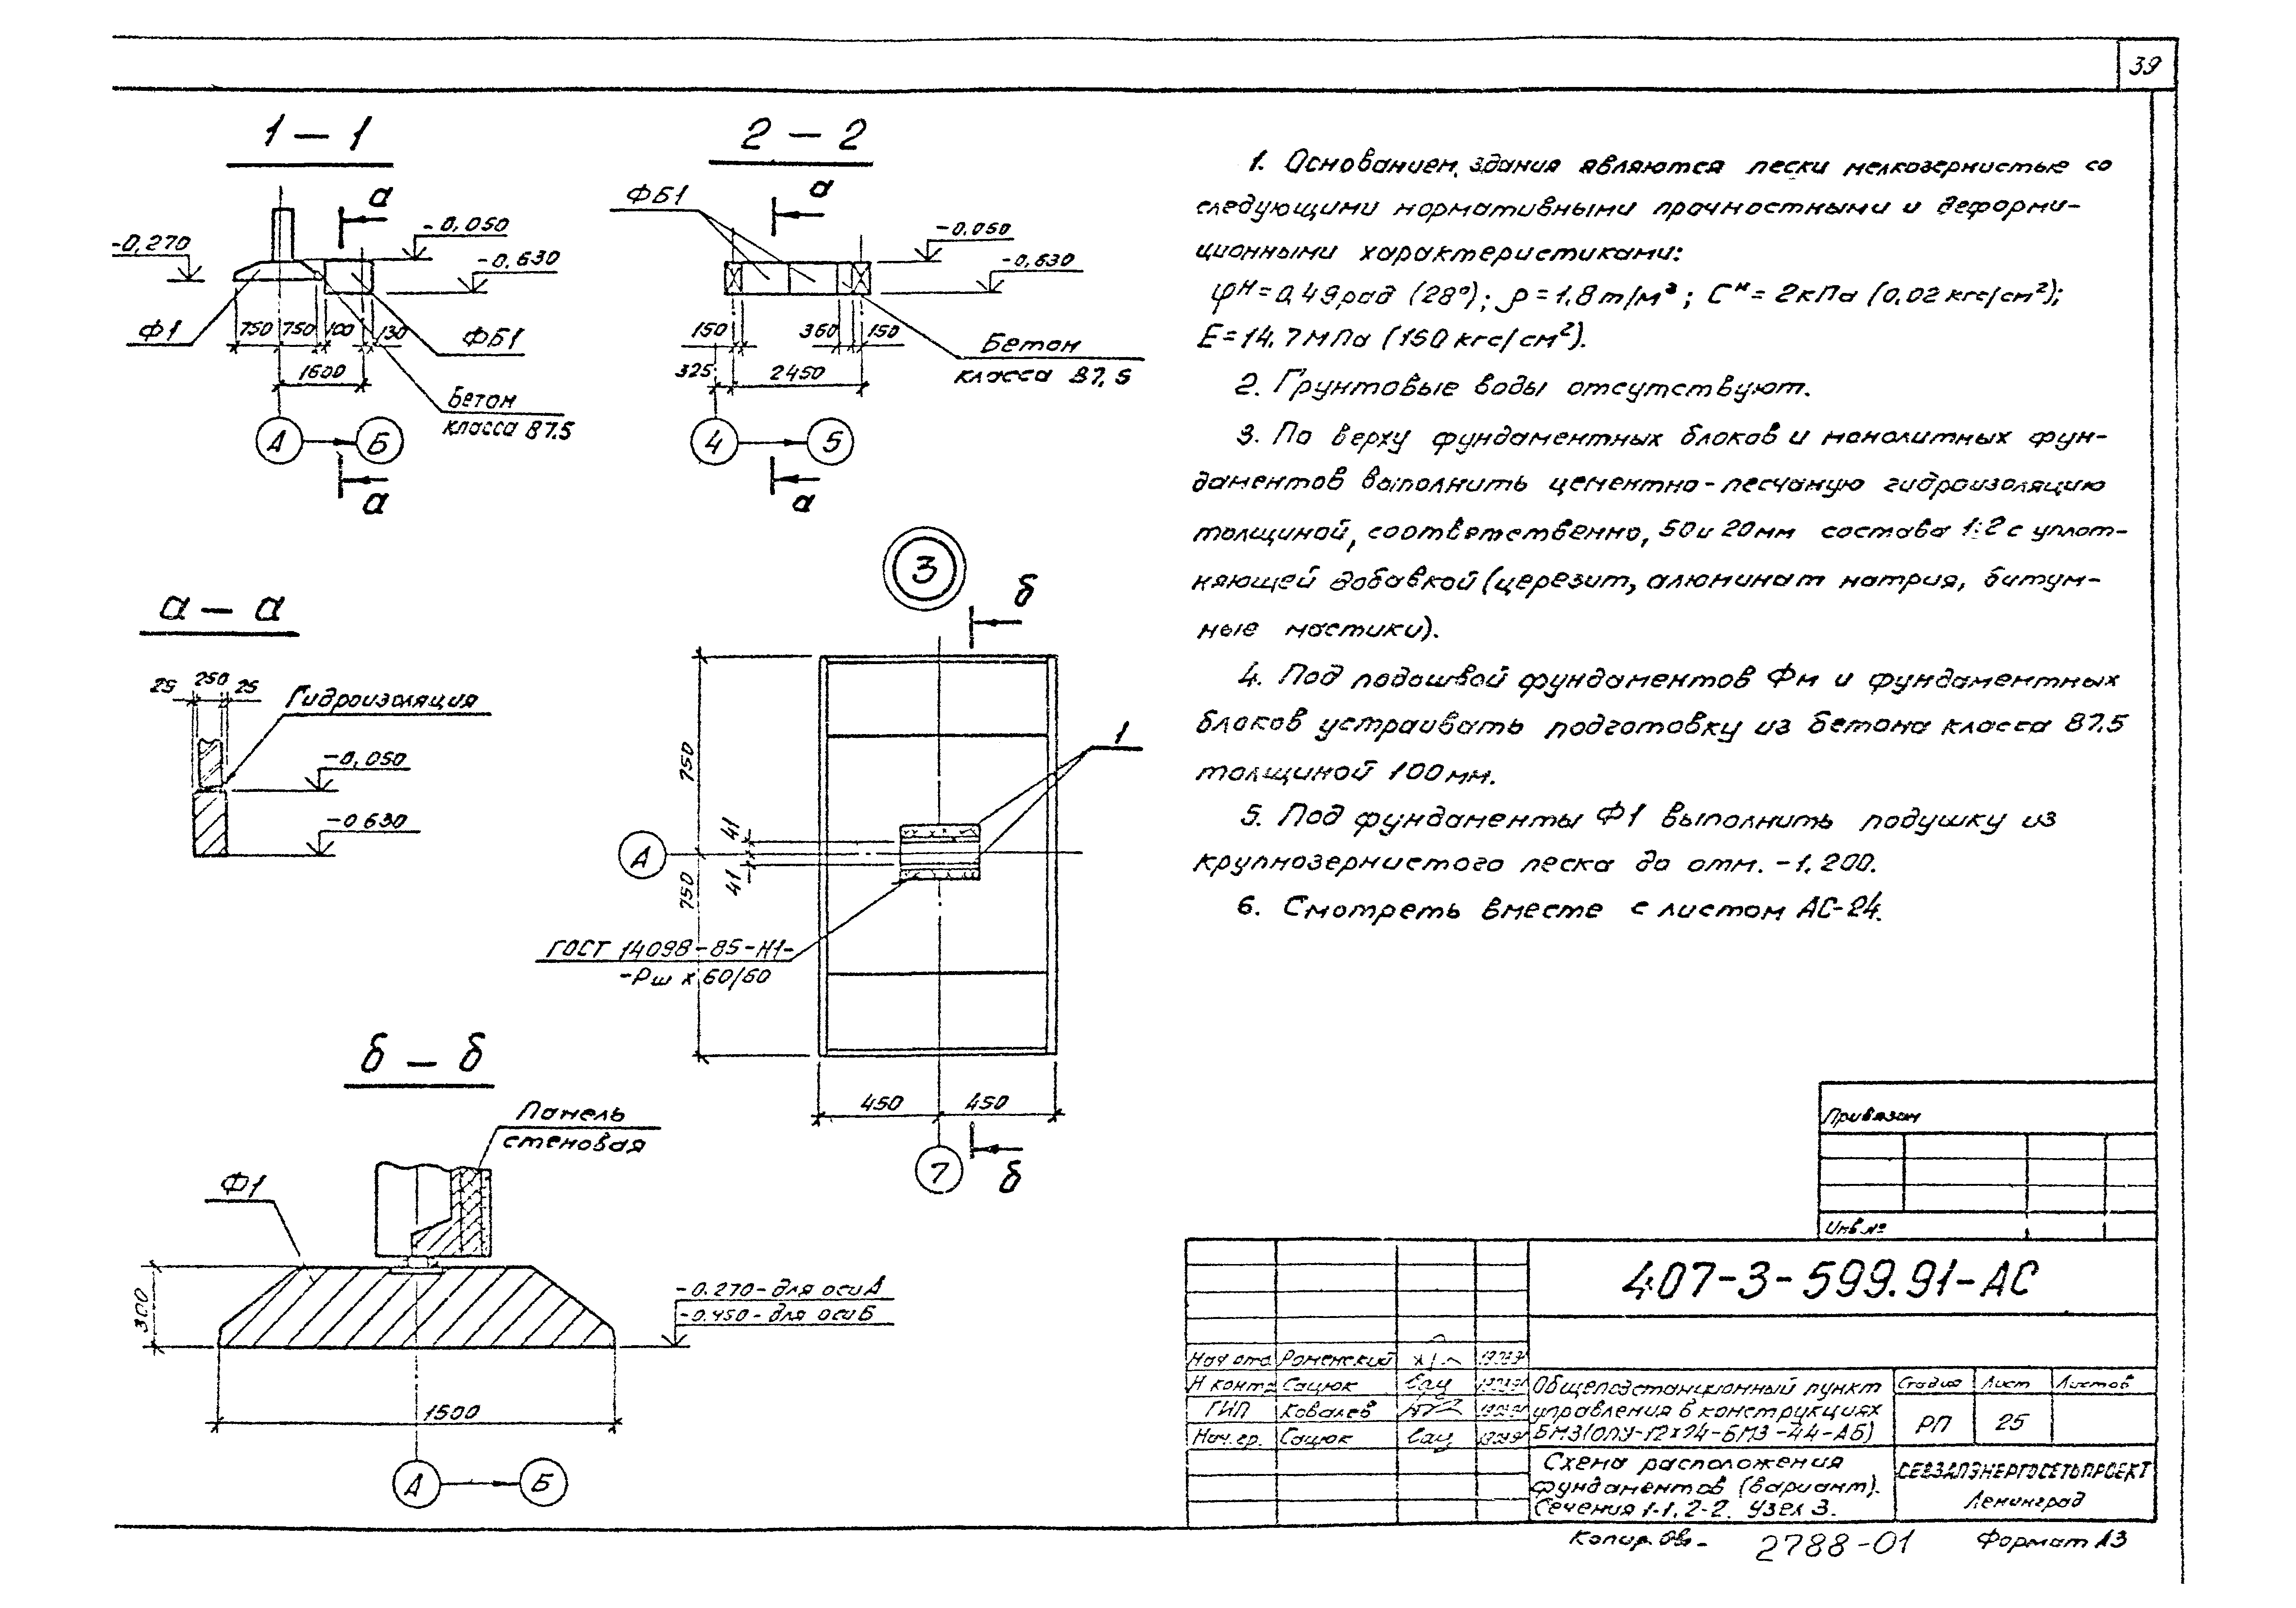 39
1 – 1
а
-0,270
-0,050
-0,630
Ф1
750 750 100 130
ФБ1
1600
Бетон
класса В7.5
А Б
а
2 – 2
ФБ1
а
-0,050
-0,630
150 360 150
325 2450
Бетон
класса В7,5
4 5
а
а – а
25 250 25
Гидроизоляция
-0,050
-0 630
3
б
1
750
41
А
41
750
ГОСТ 14098-85-Н1-
-Рш х 60/60
450 450
7
б
б – б
Панель
стеновая
Ф1
300
-0.270 - для оси А
-0.450 - для оси Б
1500
А Б
1. Основанием здания являются пески мелкозернистые со
следующими нормативными прочностными и деформи-
ционными характеристиками:
φн = 0,49рад (28°); ρ = 1,8т/м³; Cн = 2кПа (0,02 кгс/см²);
E = 14,7МПа (150 кгс/см²).
2. Грунтовые воды отсутствуют.
3. По верху фундаментных блоков и монолитных фун-
даментов выполнить цементно-песчаную гидроизоляцию
толщиной, соответственно, 50 и 20мм состава 1:2 с уплот-
няющей добавкой (церезит, алюминат натрия, битум-
ные мастики).
4. Под подошвой фундаментов Фм и фундаментных
блоков устраивать подготовку из бетона класса В7,5
толщиной 100мм.
5. Под фундаменты Ф1 выполнить подушку из
крупнозернистого песка до отм. -1,200.
6. Смотреть вместе с листом АС-24.
Привязан
Инв.№
407-3-599.91-АС
Нач отд Роменский
Н контр Сацюк
ГИП Ковалев
Нач. гр. Сацюк
Общеподстанционный пункт
управления в конструкциях
БМЗ (ОПУ-12х24-БМЗ-44-АБ)
Стадия Лист Листов
РП 25
Схема расположения
фундаментов (вариант).
Сечения 1-1, 2-2. Узел 3.
СЕВЗАПЭНЕРГОСЕТЬПРОЕКТ
Ленинград
Копир.
2788-01
Формат А3